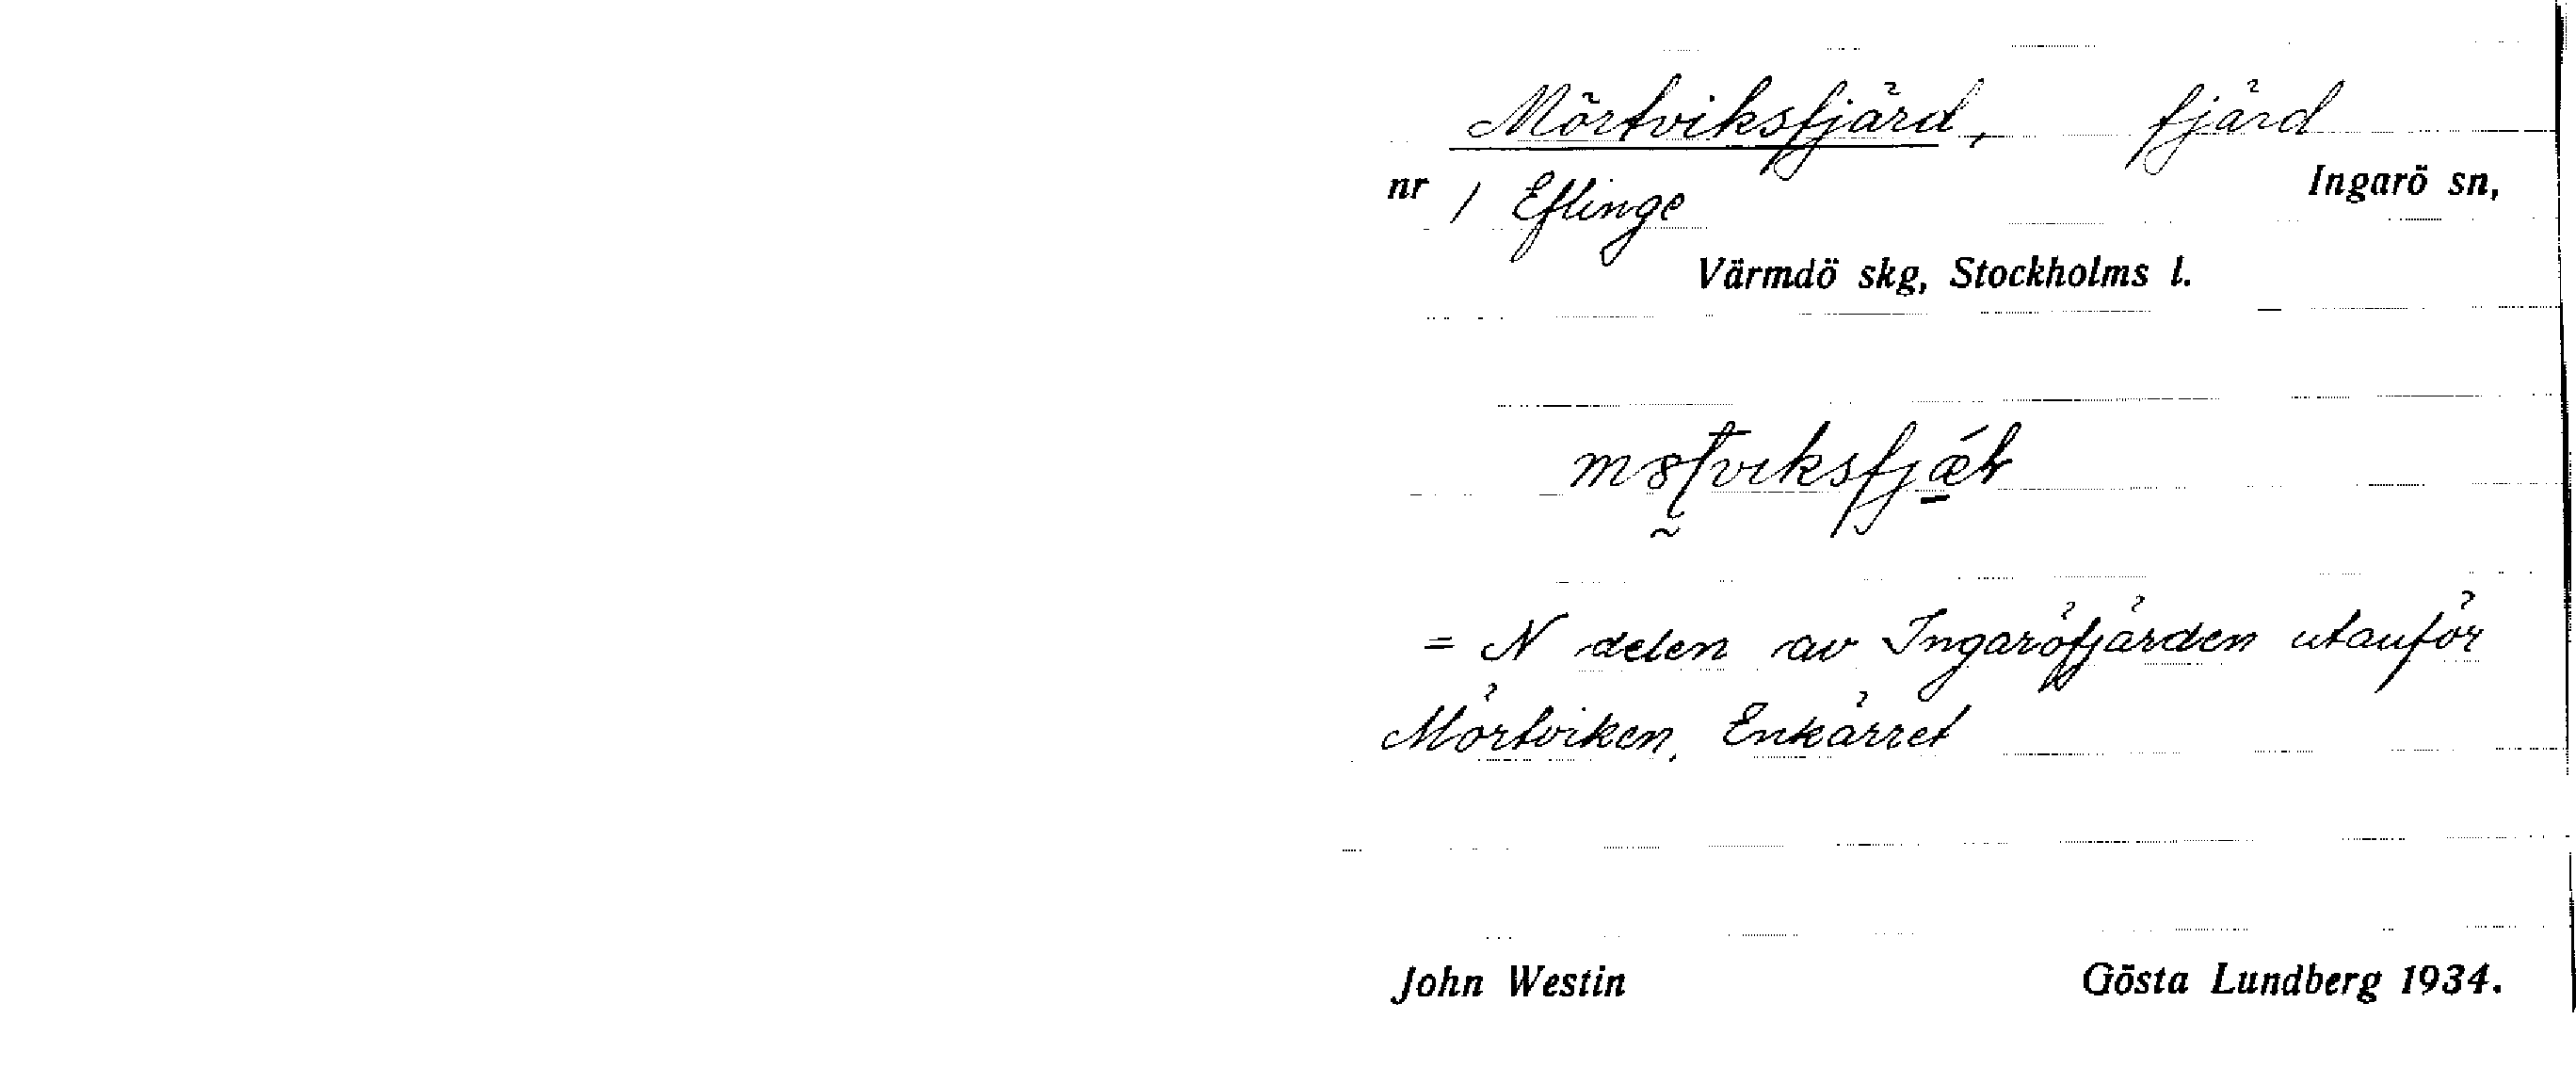 Mörtviksfjärd, fjärd
nr 1 Eflinge Ingarö sn,
Värmdö skg, Stockholms l.
= N delen av Ingaröfjärden utanför
Mörtviken, Enkärret
John Westin Gösta Lundberg 1934.